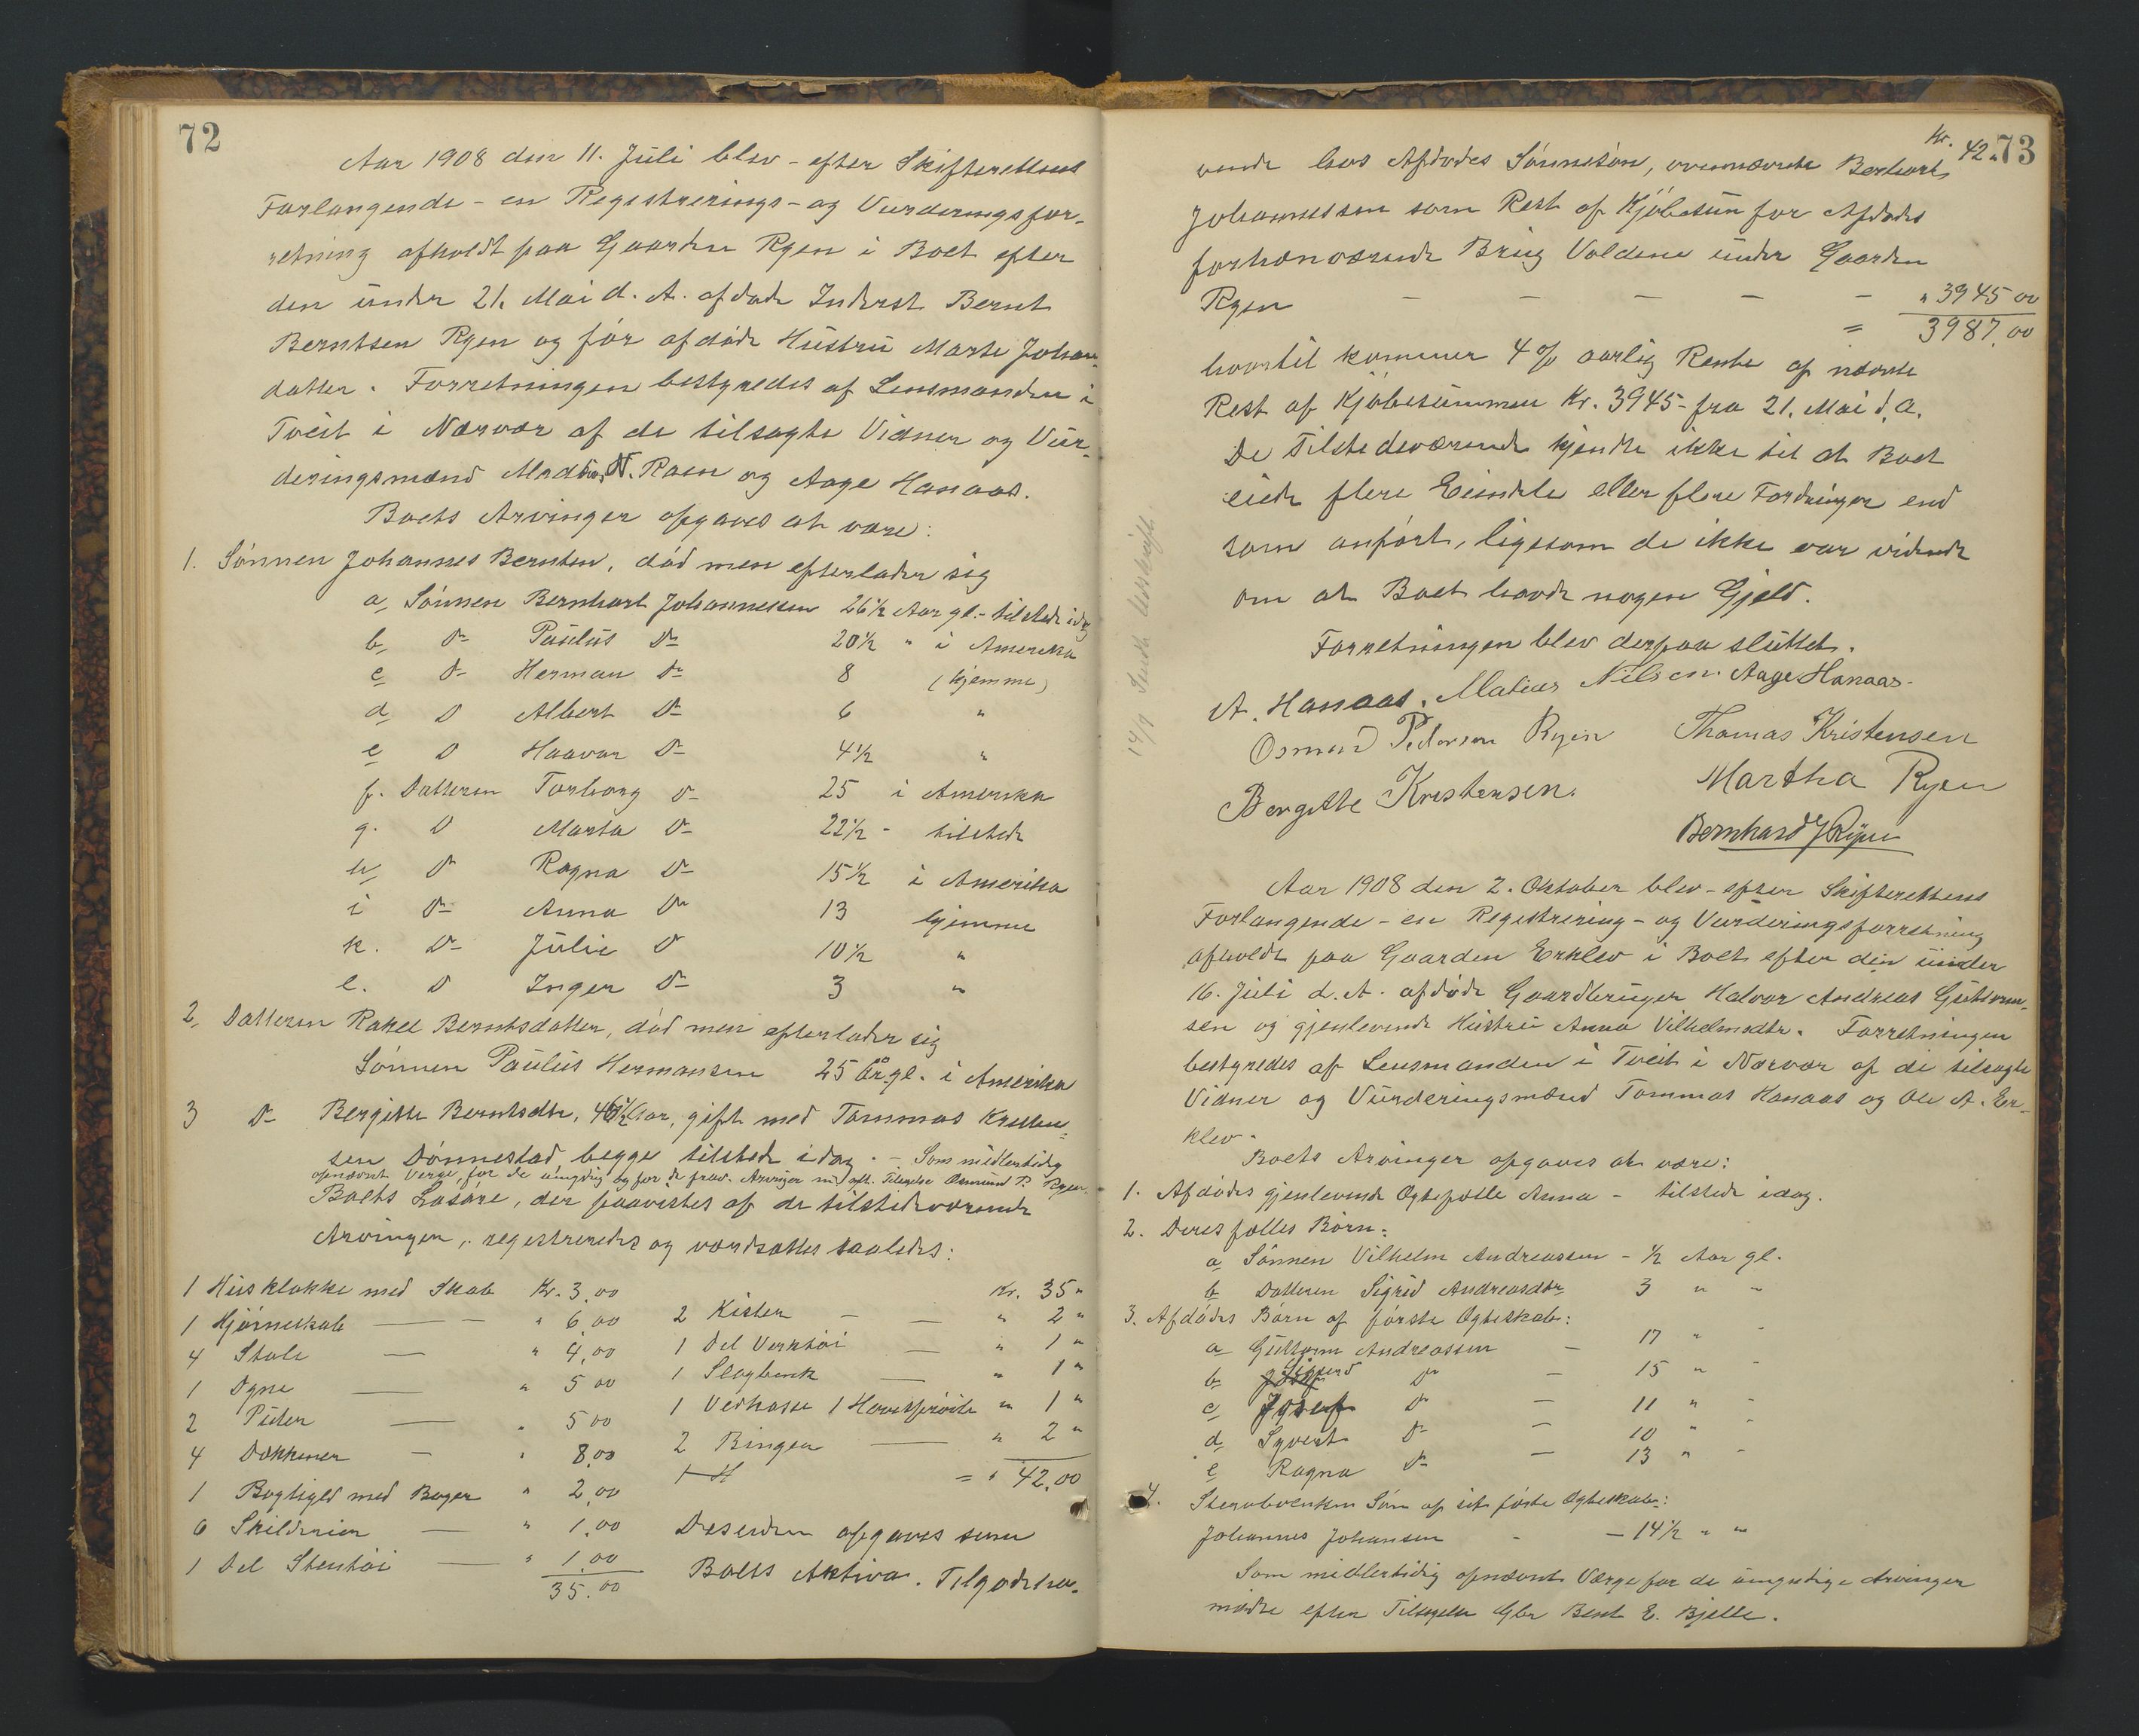 72
Aar 1908 den 11. Juli blev - efter Skifterettens
Forlangende - en Registrerings- og Vurderingsfor-
retning afholdt paa Gaarden Ryen i Boet efter
den under 21. Mai d. A. afdøde Inderst Bernt
Berntsen Ryen og før afdøde Hustru Marte Johan-
datter. Forretningen bestyredes af Lensmanden i
Tveit i Nærvær af de tilsagte Vidner og Vur-
deringsmænd Mathias N. Raen og Aage Hanaas.
Boets Arvinger opgaves at være:
1. Sønnen Johannes Bernten, død men efterlader sig
a, Sønnen Bernhart Johannessen 26½ Aar gl. - tilstede idag
b, Do Paulus Do 20½ " i Amerika
c Do Herman Do 8 (hjemme)
d, D Albert Do 6 "
e D Haavar Do 4½ "
f. Datteren Torborg Do 25 i Amerika
g. D Marta Do 22½ - tilstede
h, Do Ragna Do 15½ i Amerika
i Do Anna Do 13 hjemme
k. Do Julie D 10½ "
l. D Inger Do 3 "
2, Datteren Rakel Berntsdatter, død men efterlader sig
Sønnen Paulus Hermansen 25 År gl. i Amerika
3 Do Bergitte Berntsdtr, 46½ Aar, gift med Tommas Kristen-
sen Dønnestad begge tilstede idag. - Som midlertidig
opnævnt Verge for de umyndig og for de frav. Arvinger mødt eft. Tilsigelse Osmund P. Ryen.
Boets Løsøre, der paavistes af de tilstedeværende
Arvinger, registreredes og værdsattes saaledes:
1 Husklokke med Skab Kr. 3,00
1 Hjørneskab " 6,00
4 Stole " 4,00
1 Dyne " 5 00
2 Puter " 5 00
4 Dækkener " 8,00
1 Boghyld med Bøger " 2,00
6 Skilderier " 1,00
1 Del Stentøi " 1.00
35.00
Kr. 35 "
2 Kister " 2 "
1 Del Verktøi " 1 "
1 Slagbenk " 1 "
1 Vedkasse 1 " 1 "
2 Binger " 2 "
= " 42,00
Desuden opgaves som
Boets Aktiva. Tilgodeha-
Kr. 42 "
73
vende hos Afdødes Sønnesøn, ovennævnte Bernhart
Johannessen som Rest af Kjøbesum for Afdødes
forhenværende Brug Voldene under Gaarden
Ryen - - - - - " 3945 00
= 3987.00
hvortil kommer 4 % aarlig Rente af nævnte
Rest af Kjøbesummen Kr. 3945 - fra 21. Mai d. a.
De Tilstedeværende kjendte ikke til at Boet
eiede flere Eiendele eller flere Fordringer end
som anført, ligesom de ikke var vidende
om at Boet havde nogen Gjeld.
Forretningen blev derpaa sluttet.
A. Hanaas. Matias Nilsen. Aage Hanaas.
Osmund Pedersen Ryen Thomas Kristensen
Bergitte Kristensen. Martha Ryen
Bernhard J Ryen
Aar 1908 den 2. Oktober blev - efter Skifterettens
Forlangende - en Registrering- og Vurderingsforretning
afholdt paa Gaarden Erklev i Boet efter den under
16. Juli d. A. afdøde Gaardbruger Halvor Andreas Guttorm-
sen og gjenlevende Hustru Anna Vilhelmsdtr. Forretningen
bestyredes af Lensmanden i Tveit i Nærvær af de tilsagte
Vidner og Vurderingsmænd Tommas Hanaas og Ole A. Er-
klev.
Boets Arvinger opgaves at være:
1. Afdødes gjenlevende Ægtefælle Anna - tilstede idag.
2. Deres fælles Børn:
a Sønnen Vilhelm Andreassen - ½ Aar gl.
b Datteren Sigrid Andreasdtr 3 " "
3. Afdødes Børn af første Ægteskab:
a Guttorm Andreassen - 17 " "
b Sigurd Do - 15 " "
c, Josef Do - 11 " "
d Syvert Do - 10 " "
e Ragna Do - 13 " "
4. Stervboenkens Søn af sit første Ægteskab:
Johannes Johansen - - 14½ " "
Som midlertidig opnævnt Værge for de umyndige Arvinger
mødte efter Tilsigelse Gbr Bent E. Bjelle.